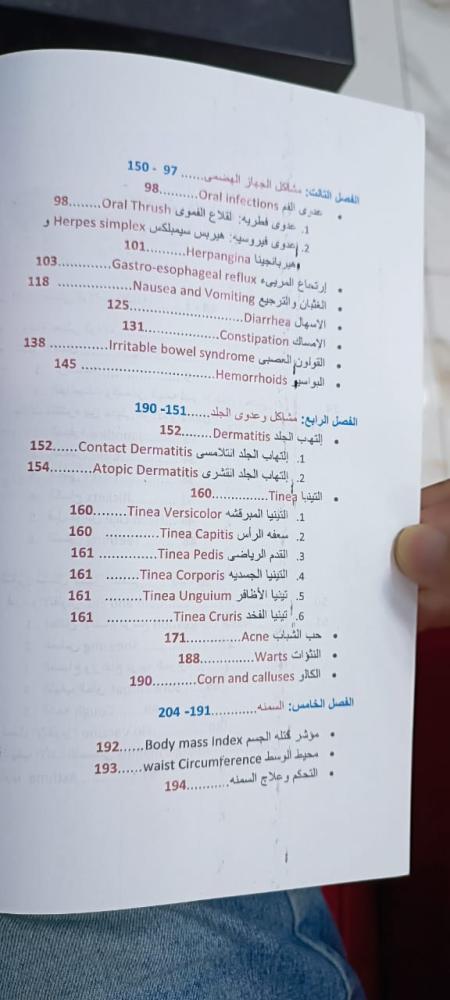 الفصل الثالث: مشاكل الجهاز الهضمى...... 97 - 150
• عدوى الفم Oral infections..........98
1. عدوى فطريه: القلاع الفموى Oral Thrush........98
2. عدوى فيروسيه: هيربس سيمبلكس Herpes simplex و
هيربانجينا Herpangina..........101
• إرتجاع المريىء Gastro-esophageal reflux............103
• الغثيان والترجيع Nausea and Vomiting ............. 118
• الاسهال Diarrhea......................125
• الامساك Constipation..............131
• القولون العصبى Irritable bowel syndrome ............138
• البواسير Hemorrhoids........................... 145
الفصل الرابع: مشاكل وعدوى الجلد......151- 190
• إلتهاب الجلد Dermatitis........152
1. إلتهاب الجلد التلامسى Contact Dermatitis.....152
2. إلتهاب الجلد التشرى Atopic Dermatitis.........154
• التينيا Tinea...............160
1. التينيا المبرقشه Tinea Versicolor........160
2. سعفه الرأس Tinea Capitis ............. 160
3. القدم الرياضى Tinea Pedis ............. 161
4. التينيا الجسديه Tinea Corporis ........ 161
5. تينيا الأظافر Tinea Unguium ........ 161
6. تينيا الفخد Tinea Cruris ................ 161
• حب الشباب Acne.............171
• النتؤات Warts.............188
• الكالو Corn and calluses...........190
الفصل الخامس: السمنه............191- 204
• مؤشر كتله الجسم Body mass Index......192
• محيط الوسط waist Circumference......193
• التحكم وعلاج السمنه...........194